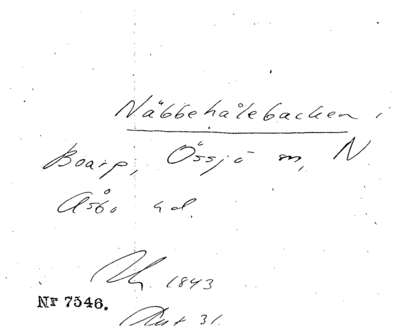 Näbbehålebacken,
Boarp, Össjö sn, N
Åsbo hd.
1843
Nr 7546.
31.